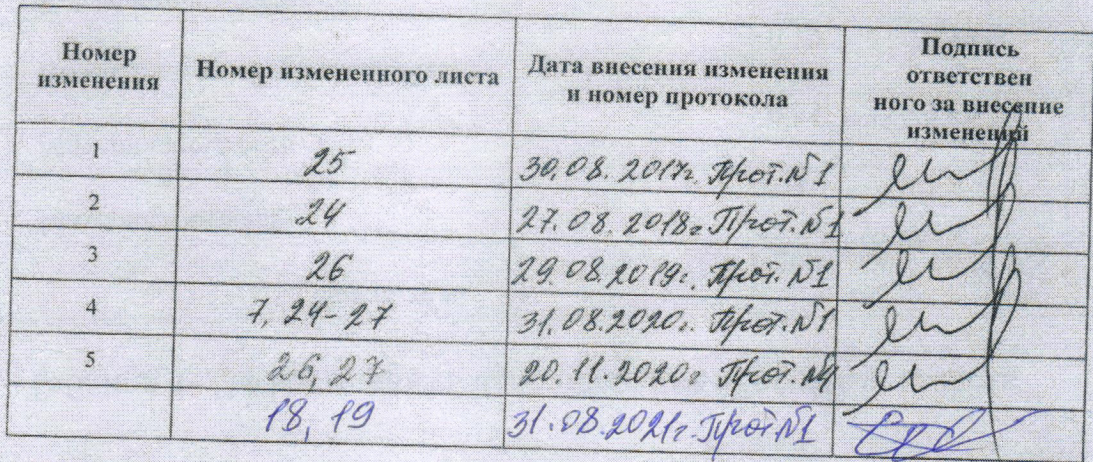 Номер изменения
Номер измененного листа
Дата внесения изменения и номер протокола
Подпись ответствен ного за внесение изменений
1 25 30.08.2017г. Прот.№1
2 24 27.08.2018г Прот.№1
3 26 29.08.2019г. Прот.№1
4 7, 24-27 31.08.2020г. Прот.№1
5 26, 27 20.11.2020г Прот.№4
18, 19 31.08.2021г. Прот.№1